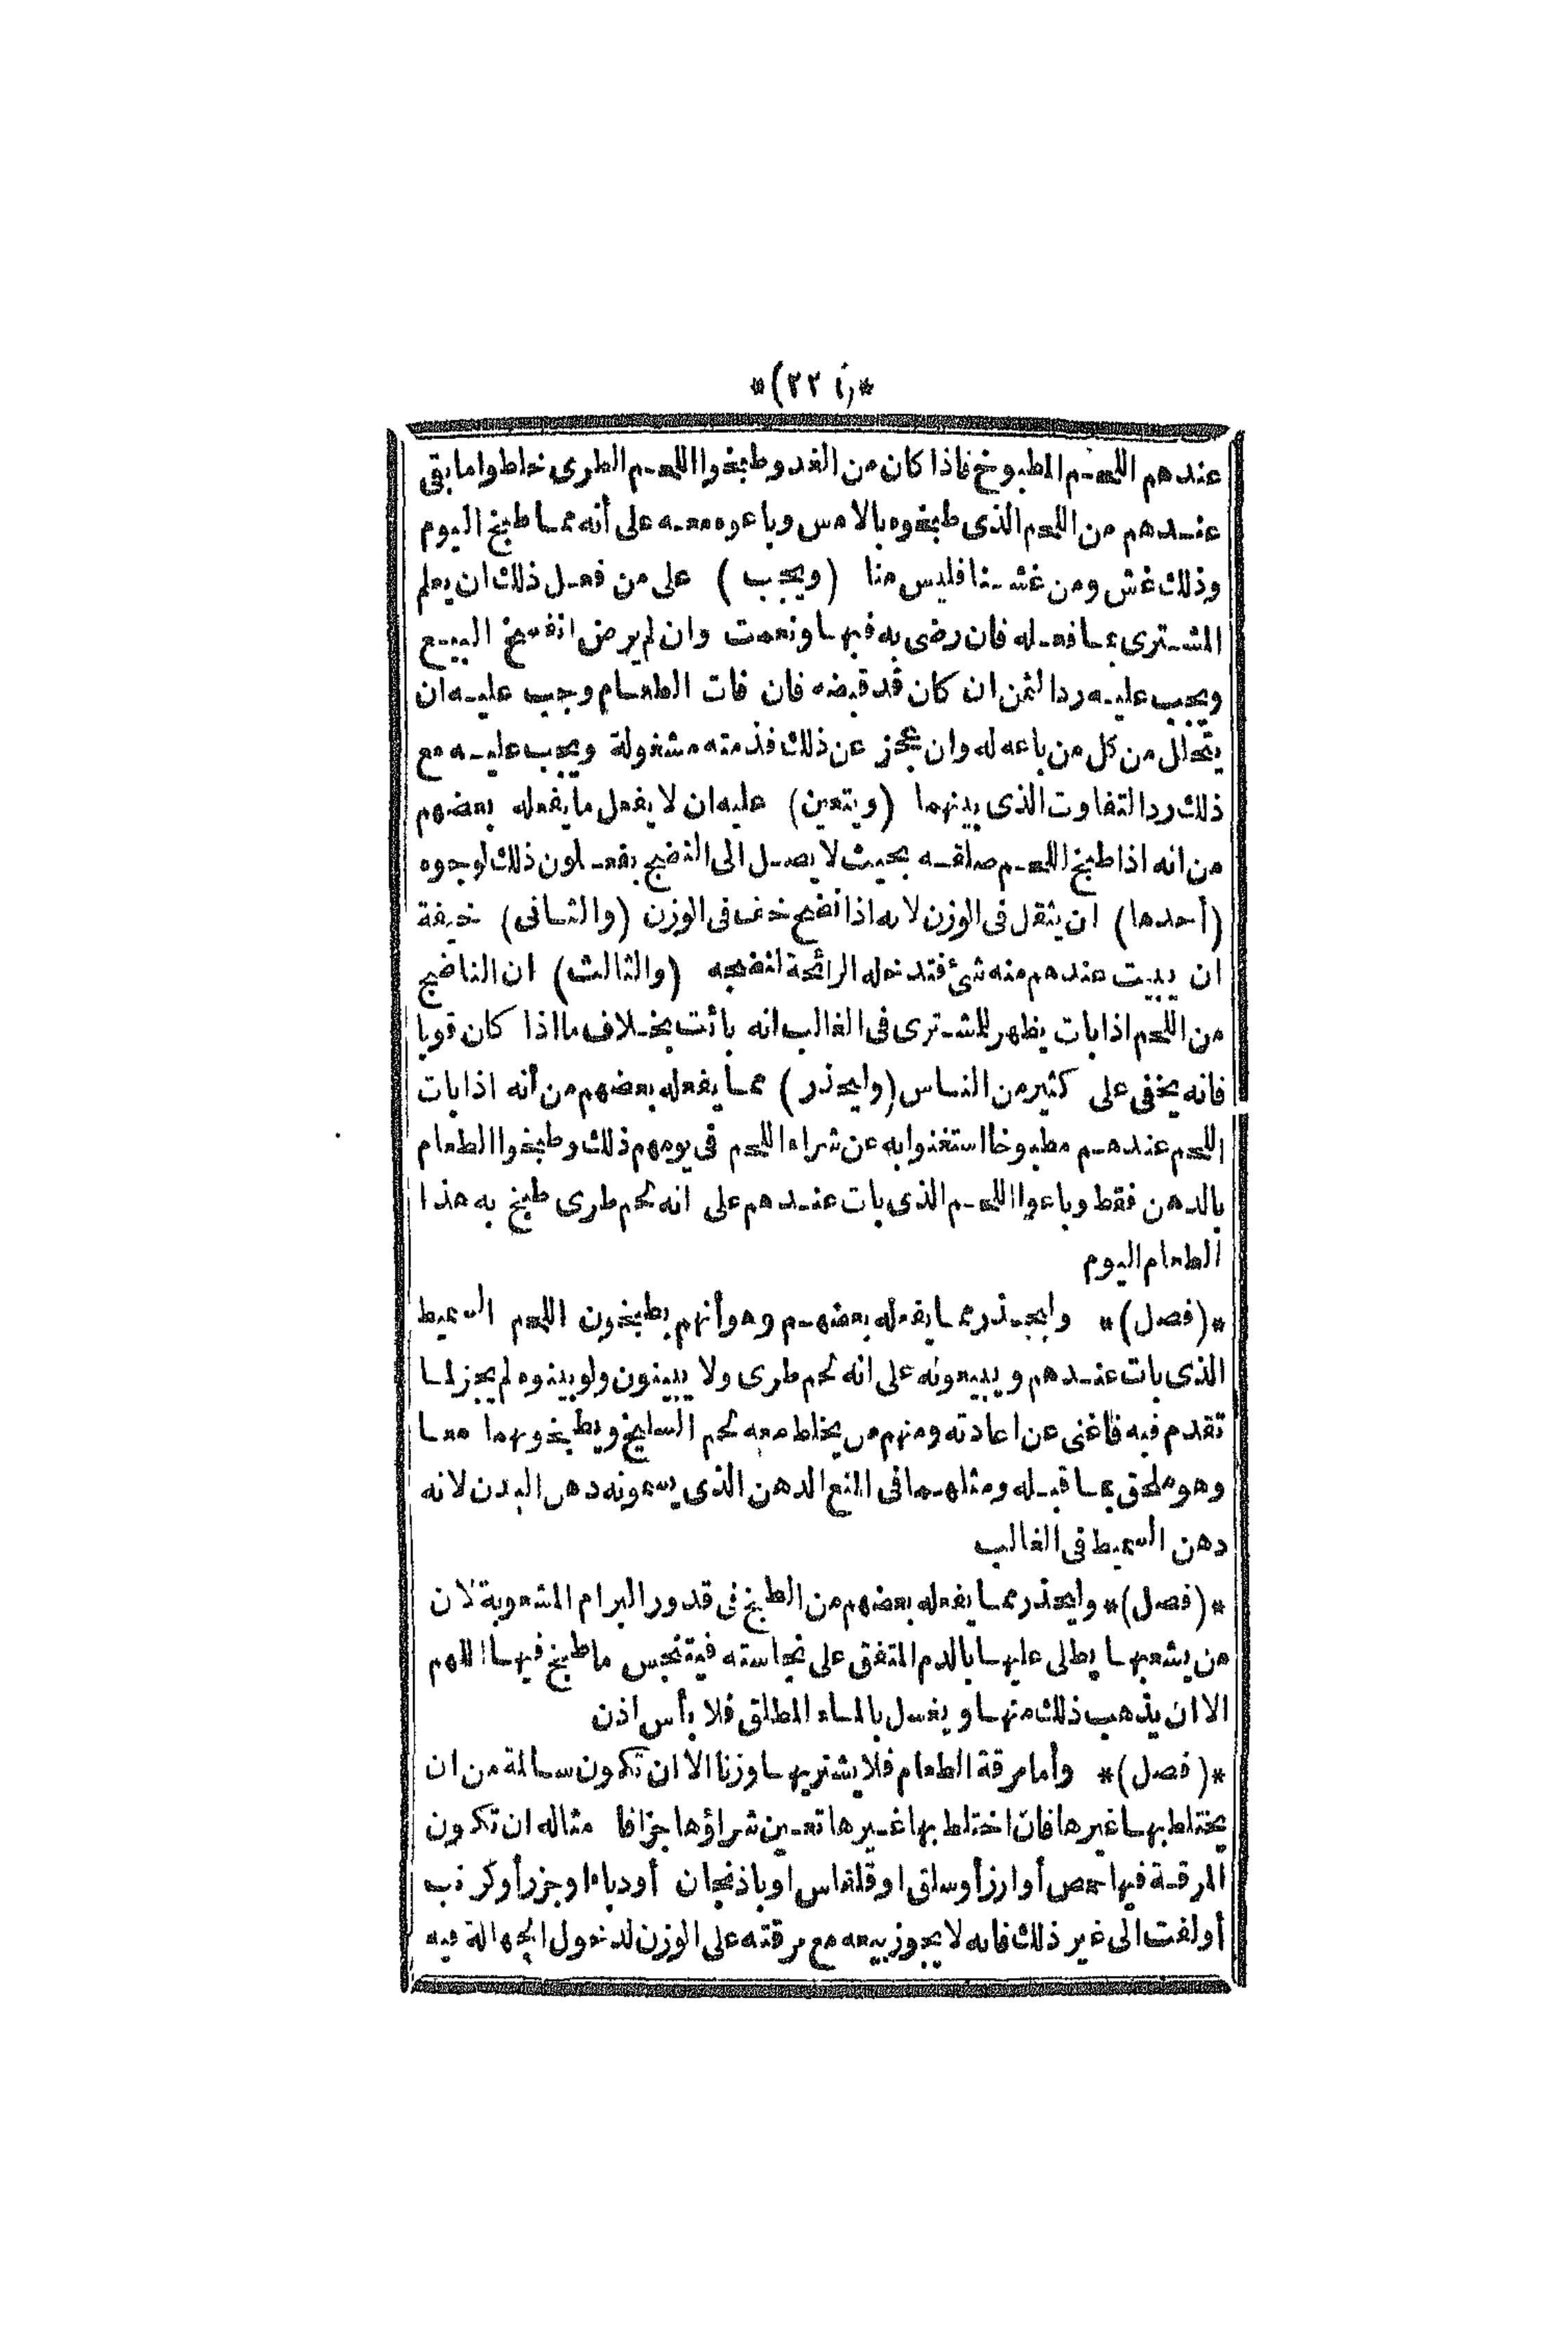 *(٢٢)*
عندهم اللحم المطبوخ فاذا كان من الغد وطبخوا اللحم الطرى خلطوا ما بقى
عندهم من اللحم الذى طبخوه بالامس وباعوه معه على أنه مما طبخ اليوم
وذلك غش ومن غشنا فليس منا (ويجب) على من فعل ذلك ان يعلم
المشترى بما فعله فان رضى به فبها ونعمت وان لم يرض انفسخ البيع
ويجب عليه رد الثمن ان كان قد قبضه فان فات الطعام وجب عليه ان
يتحالل من كل من باعه له وان عجز عن ذلك فذمته مشغولة ويجب عليه مع
ذلك رد التفاوت الذى بينهما (ويتعين) عليه ان لا يفعل ما يفعله بعضهم
من انه اذا طبخ اللحم صلقه بحيث لا يصل الى النضج يفعلون ذلك لوجوه
(أحدها) ان يثقل فى الوزن لانه اذا نضج خف فى الوزن (والثانى) خيفة
ان يبيت عندهم منه شئ فتدخله الرائحة لنضجه (والثالث) ان الناضج
من اللحم اذا بات يظهر للمشترى فى الغالب انه بائت بخلاف ما اذا كان قويا
فانه يخفى على كثير من الناس (وليحذر) مما يفعله بعضهم من أنه اذا بات
اللحم عندهم مطبوخا استغنوا به عن شراء اللحم فى يومهم ذلك وطبخوا الطعام
بالدهن فقط وباعوا اللحم الذى بات عندهم على انه لحم طرى طبخ به هذا
الطعام اليوم
*(فصل)* وليحذر مما يفعله بعضهم وهو أنهم يطبخون اللحم السميط
الذى بات عندهم ويبيعونه على انه لحم طرى ولا يبينون ولو بينوه لم يجز لما
تقدم فيه فاغنى عن اعادته ومنهم من يخلط معه لحم السليخ ويطبخونهما معا
وهو ملحق بما قبله ومثلهما فى المنع الدهن الذى يسمونه دهن البدن لانه
دهن السميط فى الغالب
*(فصل)* وليحذر مما يفعله بعضهم من الطبخ فى قدور البرام المشعوبة لان
من يشعبها يطلى عليها بالدم المتفق على نجاسته فيتنجس ما طبخ فيها اللهم
الا ان يذهب ذلك منها ويغسل بالماء المطلق فلا بأس اذن
*(فصل)* وأما مرقة الطعام فلا يشتريها وزنا الا ان تكون سالمة من ان
يختلط بها غيرها فان اختلط بها غيرها تعين شراؤها جزافا مثاله ان تكون
المرقة فيها حمص أو ارز أو سلق او قلقاس او باذنجان أو دباء او جزر أو كرنب
أو لفت الى غير ذلك فانه لا يجوز بيعه مع مرقته على الوزن لدخول الجهالة فيه